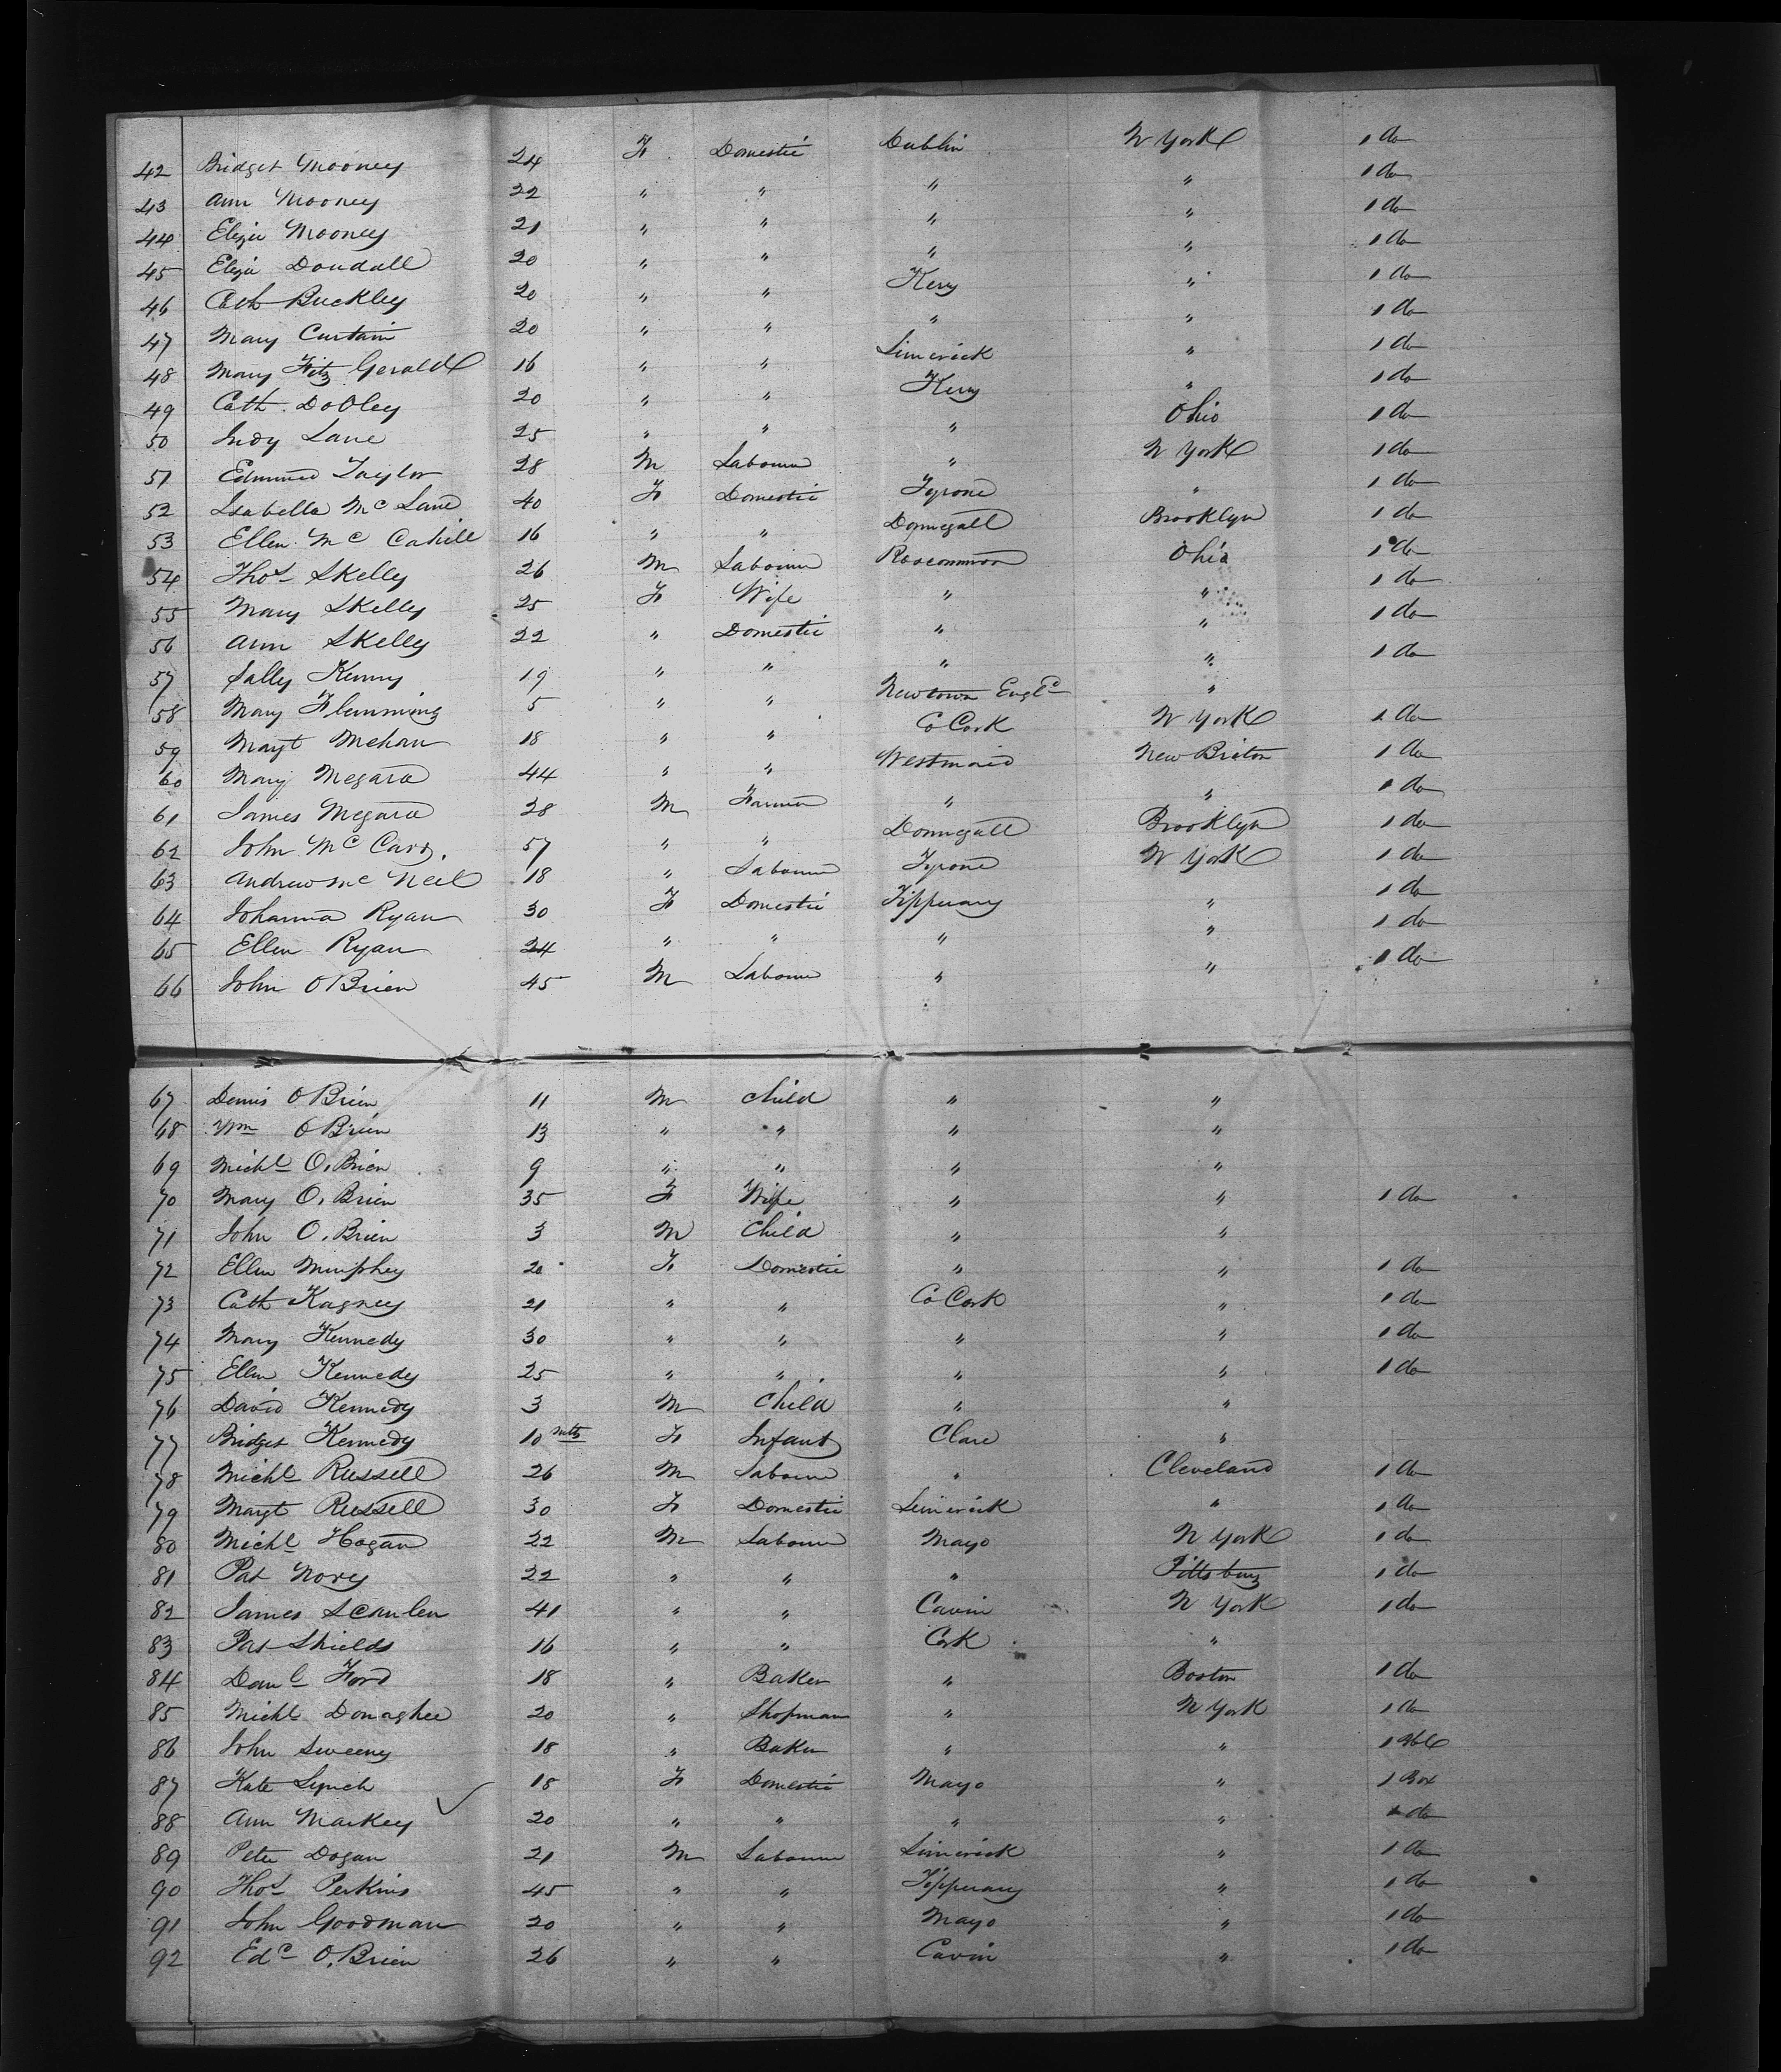 42 Bridget Mooney 24 F Domestic Dublin N York 1 do
43 Ann Mooney 22 " " " " 1 do
44 Eliza Mooney 21 " " " " 1 do
45 Eliza Doudall 20 " " " " 1 do
46 Cath Buckley 20 " " Kery " 1 do
47 Mary Curtain 20 " " " " 1 do
48 Mary Fitz Gerald 16 " " Limerick " 1 do
49 Cath. Dooley 20 " " Kery " 1 do
50 Judy Lane 25 " " " Ohio 1 do
51 Edmund Taylor 28 M Labourer " N York 1 do
52 Isabella Mc Lane 40 F Domestic Tyrone " 1 do
53 Ellen Mc Cahill 16 " " Donnegall Brooklyn 1 do
54 Thos Skelly 26 M Labourer Roscommon Ohio 1 do
55 Mary Skelly 25 F Wife " " 1 do
56 Ann Skelly 22 " Domestic " " 1 do
57 Sally Kenny 19 " " " " 1 do
58 Mary Flemming 5 " " Newtown "
59 Magt Mehan 18 " " Co Cork N York 1 do
60 Mary Megara 44 " " Westmaid New Briton 1 do
61 James Megara 28 M Farmer " " 1 do
62 John Mc Carr. 57 " " Donnegall Brooklyn 1 do
63 Andrew Mc Neil 18 " Labourer Tyrone N York 1 do
64 Johanna Ryan 30 F Domestic Tipperary " 1 do
65 Ellen Ryan 24 " " " " 1 do
66 John O Brien 45 M Labourer " " 1 do
67 Dennis O Brien 11 M Child " "
68 Wm O Brien 13 " " " "
69 Michl O, Brien 9 " " " "
70 Mary O, Brien 35 F Wife " " 1 do
71 John O, Brien 3 M Child " "
72 Ellen Murphey 20 F Domestic " " 1 do
73 Cath Kagney 21 " " Co Cork " 1 do
74 Mary Kennedy 30 " " " " 1 do
75 Ellen Kennedy 25 " " " " 1 do
76 David Kennedy 3 M Child " "
77 Bridget Kennedy 10 mths F Infant Clare "
78 Michl Russell 26 M Labourer " Cleveland 1 do
79 Magt Russell 30 F Domestic Limerick " 1 do
80 Michl Hogan 22 M Labourer Mayo N York 1 do
81 Pat Nory 22 " " " Pittsburg 1 do
82 James Scanlen 41 " " Cavin N York 1 do
83 Pat Shields 16 " " Cork "
84 Danl Ford 18 " Baker " Boston 1 do
85 Michl Donaghee 20 " Shopman " N York 1 do
86 John Sweeny 18 " Baker " " 1
87 Kate Lynch 18 F Domestic Mayo " 1 Box
88 Ann Markey 20 " " " " 1 do
89 Peter Dogan 21 M Labourer Limerick " 1 do
90 Thos Perkins 45 " " Tipperary " 1 do
91 John Goodman 20 " " Mayo " 1 do
92 Edd O, Brien 26 " " Cavin " 1 do